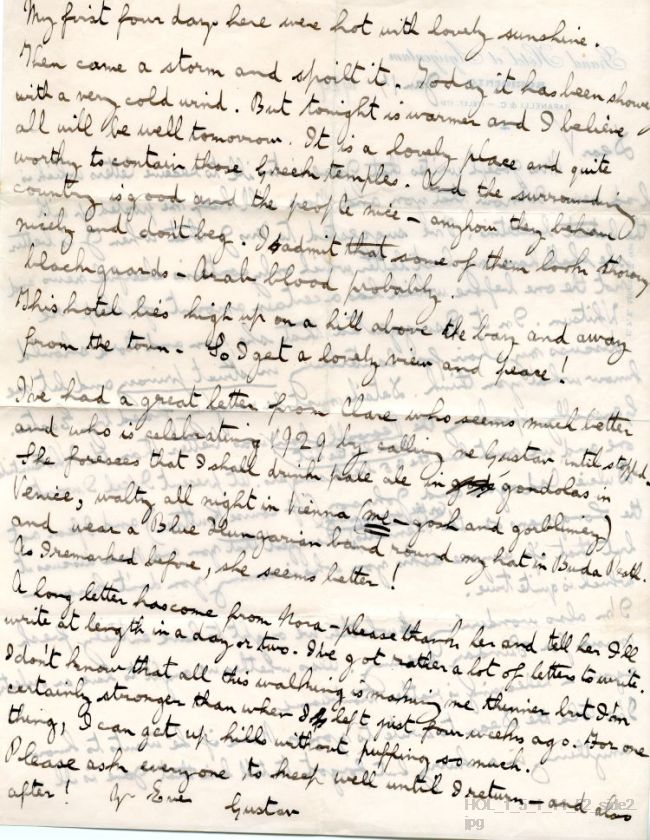 My first four days here were hot with lovely sunshine.
Then came a storm and spoilt it. Today it has been showery
with a very cold wind. But tonight is warmer and I believe
all will be well tomorrow. It is a lovely place and quite
worthy to contain those Greek temples. And the surrounding
country is good and the people nice – anyhow they behave
nicely and don't beg. I admit that some of them look thorny
blackguards – Arab blood probably.
This hotel lies high up on a hill above the bay and away
from the town. So I get a lovely view and peace!
I've had a great letter from Clare who seems much better
and who is celebrating 1929 by calling me Gustav until stopped.
She foresees that I shall drink pale ale in gondolas in
Venice, waltz all night in Vienna (me – gosh and gorblimey)
and wear a Blue Hungarian band round my hat in Buda Pesth.
As I remarked before, she seems better!
A long letter has come from Nora – please thank her and tell her I'll
write at length in a day or two. I've got rather a lot of letters to write.
I don't know that all this walking is making me thinner but I'm
certainly stronger than when I left just four weeks ago. For one
thing, I can get up hills without puffing so much.
Please ask everyone to keep well until I return – and also
after! Yr Ever
Gustav
HOL_1_5_1_14_52_side2
jpg